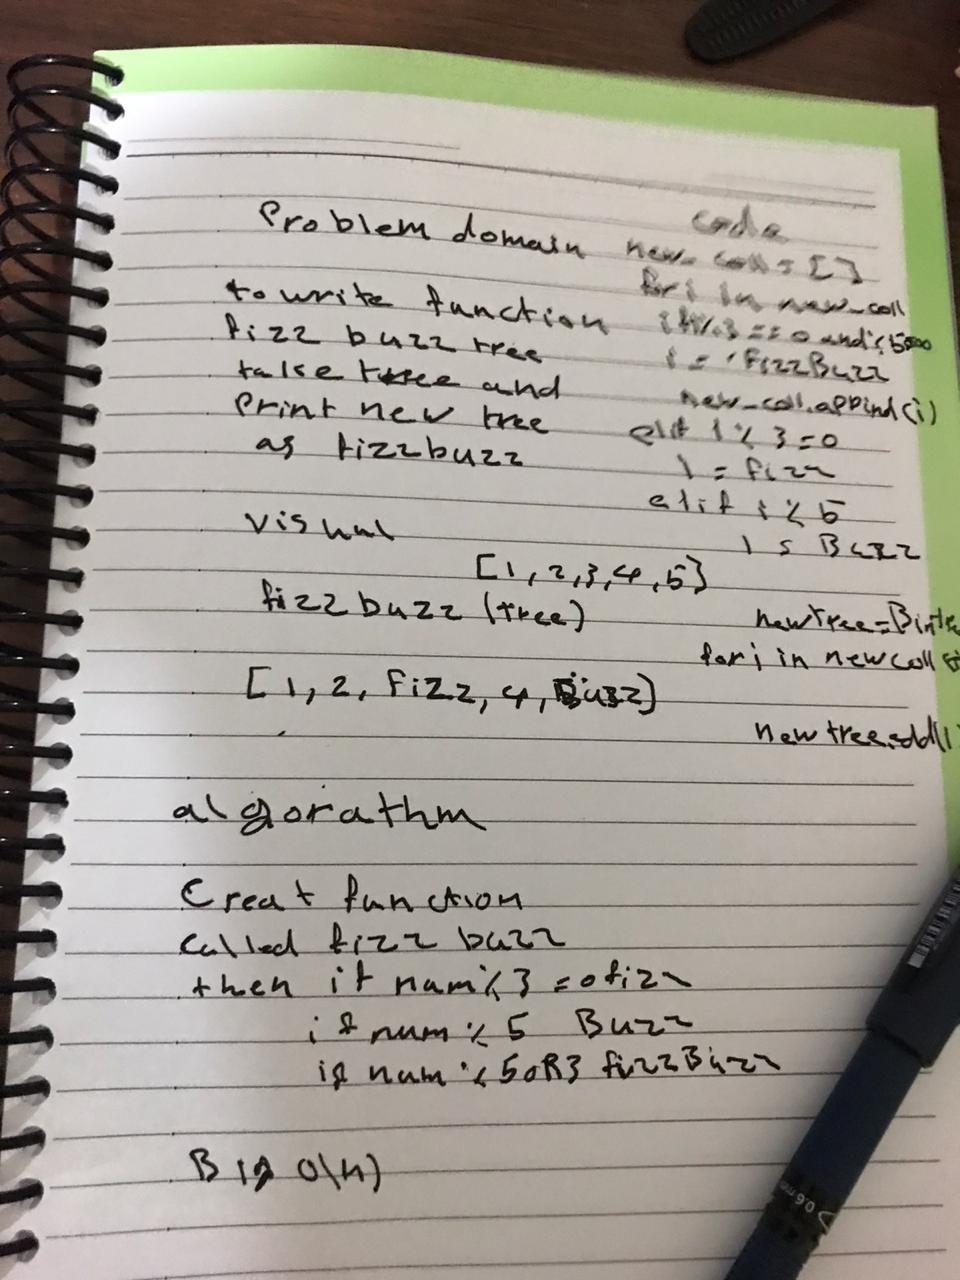 Problem domain
to write function
fizz buzz tree
take tree and
Print new tree
as fizzbuzz
visual
[1, 2, 3, 4, 5]
fizz buzz (tree)
[1, 2, Fizz, 4, Buzz]
algorathm
Creat function
Called fizz buzz
then if num % 3 = 0 fizz
if num % 5 Buzz
if num % 5 OR 3 fizzBuzz
Big O(n)
code
new_coll = []
for i in new_coll
if i % 3 == 0 and
i = 'FizzBuzz
new_coll.appind(i)
elif i % 3 = 0
i = fizz
elif i % 5
i = Buzz
newtree =
for i in newcoll
newtree.add(i